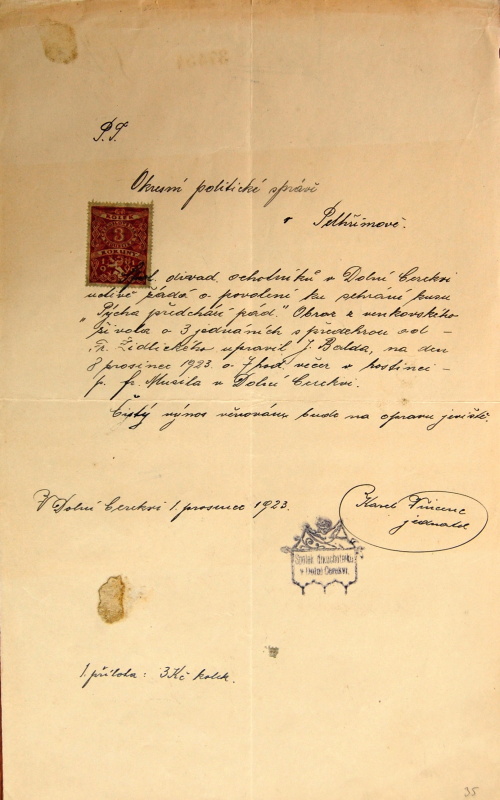 P.T.
Okresní politické správě
v Pelhřimově.
KOLEK
3
KORUNY
Spol. divad. ochotníků v Dolní Cerekvi
uctivě žádá o povolení ku sehrání kusu
"Pýcha předchází pád." Obraz z venkovského
života o 3 jednáních s předehrou od -
Fr. Židlického upravil J. Balda, na den
8 prosinec 1923 o 7 hod. večer v hostinci -
p. fr. Musila v Dolní Cerekvi.
Čistý výnos věnován bude na opravu jeviště.
V Dolní Cerekvi 1. prosince 1923.
Karel Vincenc
jednatel
Spolek div. ochotníků
v Dolní Cerekvi.
1. příloha: 3 Kč kolek.
35